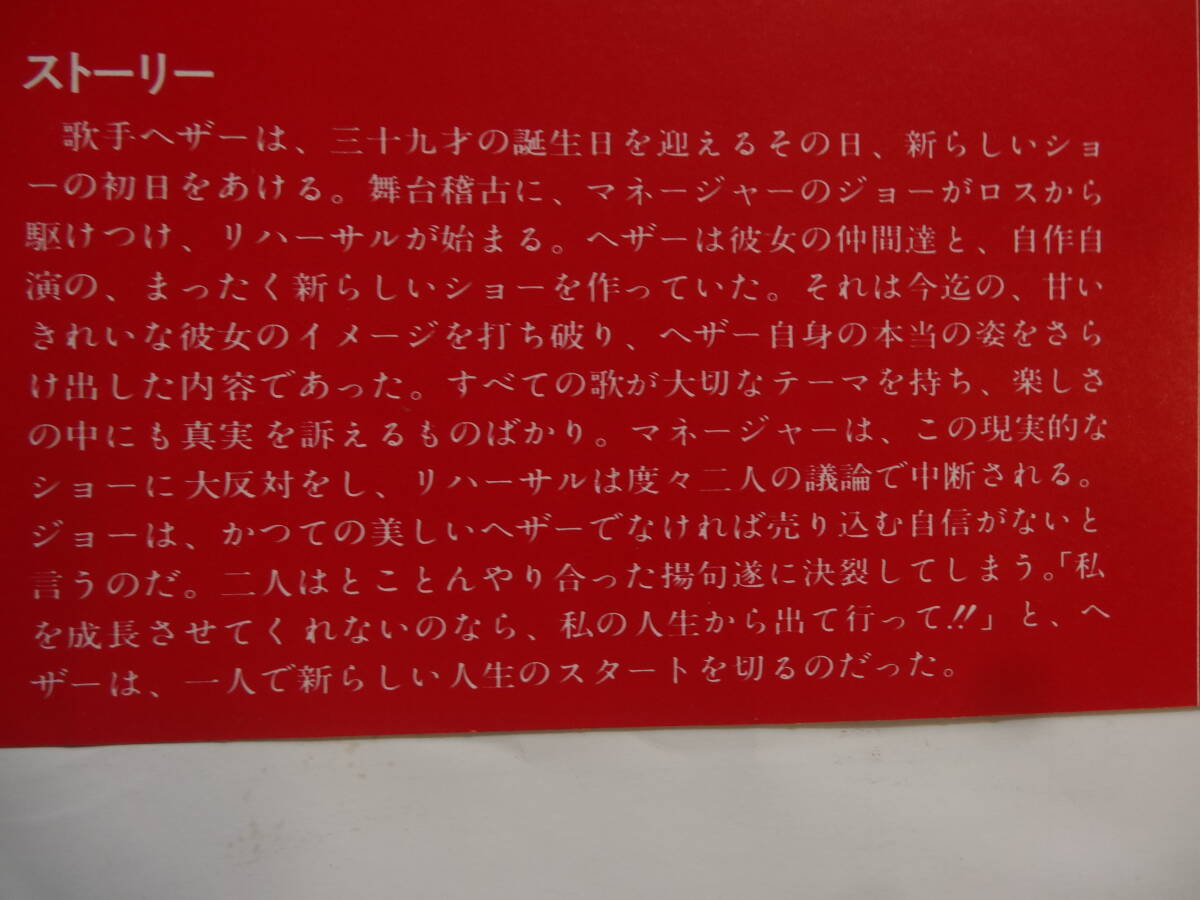 ストーリー
歌手ヘザーは、三十九才の誕生日を迎えるその日、新らしいショ
ーの初日をあける。舞台稽古に、マネージャーのジョーがロスから
駆けつけ、リハーサルが始まる。ヘザーは彼女の仲間達と、自作自
演の、まったく新らしいショーを作っていた。それは今迄の、甘い
きれいな彼女のイメージを打ち破り、ヘザー自身の本当の姿をさら
け出した内容であった。すべての歌が大切なテーマを持ち、楽しさ
の中にも真実を訴えるものばかり。マネージャーは、この現実的な
ショーに大反対をし、リハーサルは度々二人の議論で中断される。
ジョーは、かつての美しいヘザーでなければ売り込む自信がないと
言うのだ。二人はとことんやり合った揚句遂に決裂してしまう。「私
を成長させてくれないのなら、私の人生から出て行って!!」と、ヘ
ザーは、一人で新らしい人生のスタートを切るのだった。